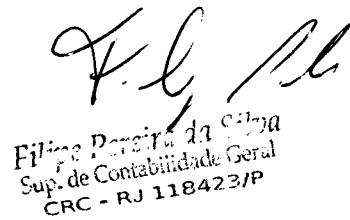 Filipe Pereira da Silva
Sup. de Contabilidade Geral
CRC - RJ 118423/P